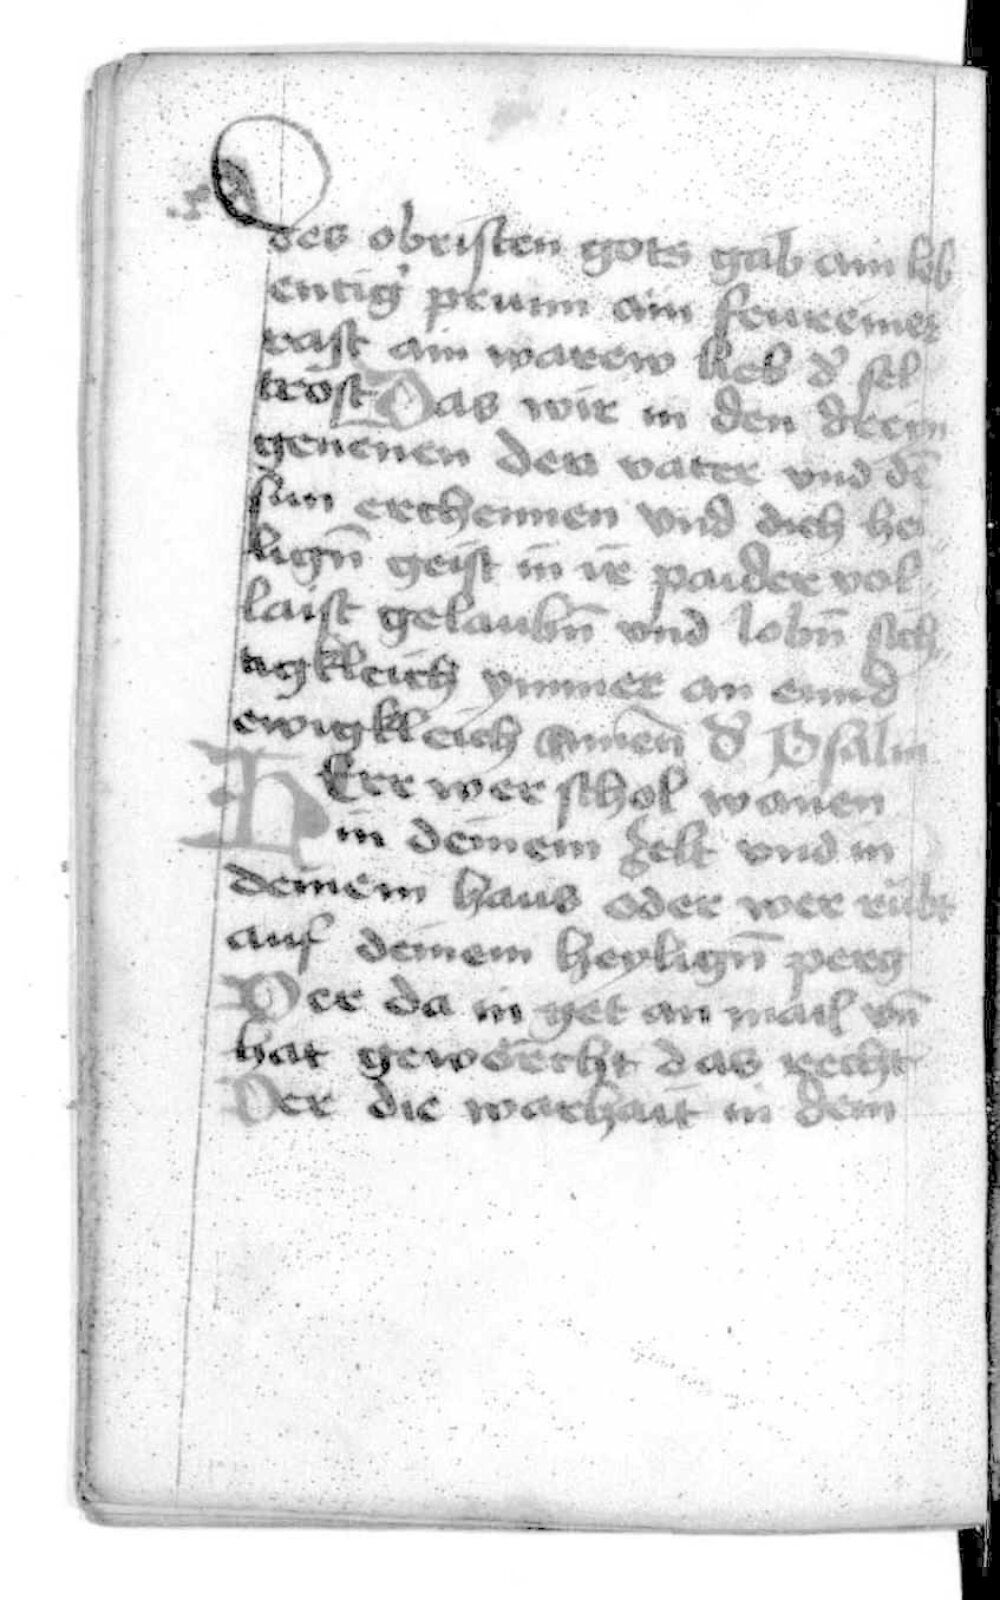 des obristen gots gab ain leb
entig' prunn ain fewreinew
rast ain warew lieb d' sel
trost Das wir in den drein
genenen den vater vnd dē
sun erchennen vnd dich hei
lign̄ geist in ir paider vol
laist gelaubn̄ vnd lobn̄ sich
tigkleich ymmer an ennd
ewigkleich Amen d' Psalm
HErr wer schol wanen
in deinem zelt vnd in
deinem haus oder wer rubt
auf deinem heylign̄ perg
Der da in get an mail vn̄
hat geworcht das recht
Der die warhait in dem